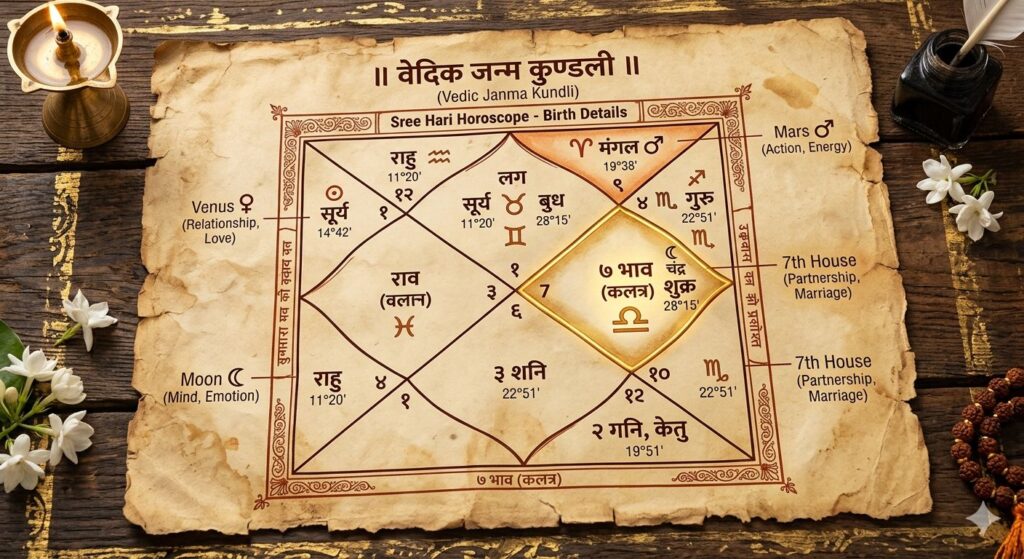 ॥ वेदिक जन्म कुण्डली ॥
(Vedic Janma Kundli)
Sree Hari Horoscope - Birth Details
राहु ♒
11°20'
१२
☉
सूर्य
14°42'
१
लग
सूर्य ♉ बुध
11°20'
28°15'
♊
♈ मंगल ♂
19°38'
९
४ ♏ गुरु
♐
22°51'
♏
राव
(वलान)
♓
३
१
६
7
७ भाव
(कलत्र)
♎
☾
चंद्र
शुक्र
28°15'
राहु
11°20'
४
१
३ शनि
22°51'
१०
१२
♏
22°51'
२ गनि, केतु
19°51'
७ भाव (कलत्र)
Venus ♀
(Relationship,
Love)
Moon ☾
(Mind, Emotion)
Mars ♂
(Action, Energy)
7th House
(Partnership,
Marriage)
7th House
(Partnership,
Marriage)